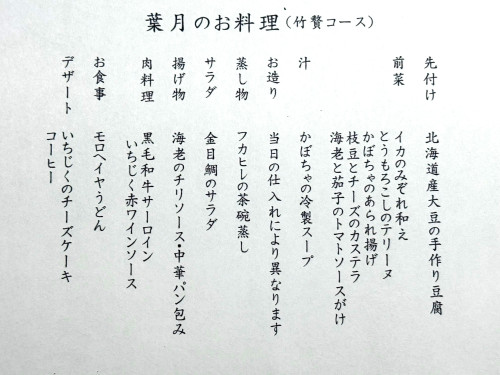 葉月のお料理（竹贅コース）
先付け　北海道産大豆の手作り豆腐
前菜　イカのみぞれ和え
とうもろこしのテリーヌ
かぼちゃのあられ揚げ
枝豆とチーズのカステラ
海老と茄子のトマトソースがけ
汁　かぼちゃの冷製スープ
お造り　当日の仕入れにより異なります
蒸し物　フカヒレの茶碗蒸し
サラダ　金目鯛のサラダ
揚げ物　海老のチリソース・中華パン包み
肉料理　黒毛和牛サーロイン
いちじく赤ワインソース
お食事　モロヘイヤうどん
デザート　いちじくのチーズケーキ
コーヒー